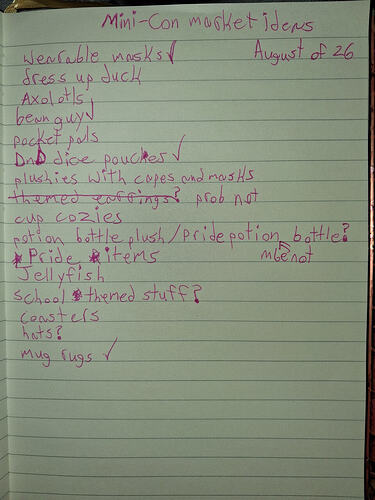 Mini-Con market ideas
wearable masks ✓ August of 26
dress up duck
Axolotls
bean guy ✓
pocket pals
DnD dice pouches ✓
plushies with capes and masks
themed earrings? prob not
cup cozies
potion bottle plush/Pride potion bottle?
*Pride *items mbe not
Jellyfish
school themed stuff?
coasters
hats?
mug rugs ✓